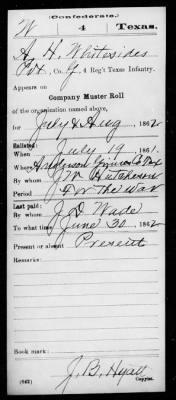 (Confederate.)
W 4 Texas.
A. H. Whitesides
Pvt, Co. G, 4 Reg't Texas Infantry.
Appears on
Company Muster Roll
of the organization named above,
for July & Aug, 1862
Enlisted:
When July 19, 1861.
Where Co Tex
By whom J. W. Hutcheson
Period For the War
Last paid:
By whom J. D. Wade
To what time June 30, 1862
Present or absent Present
Remarks:
Book mark:
(642) J. B. Hyatt
Copyist.